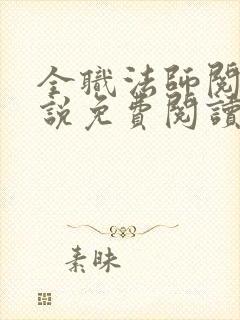 全職法師閱
說免費閱讀
素昧